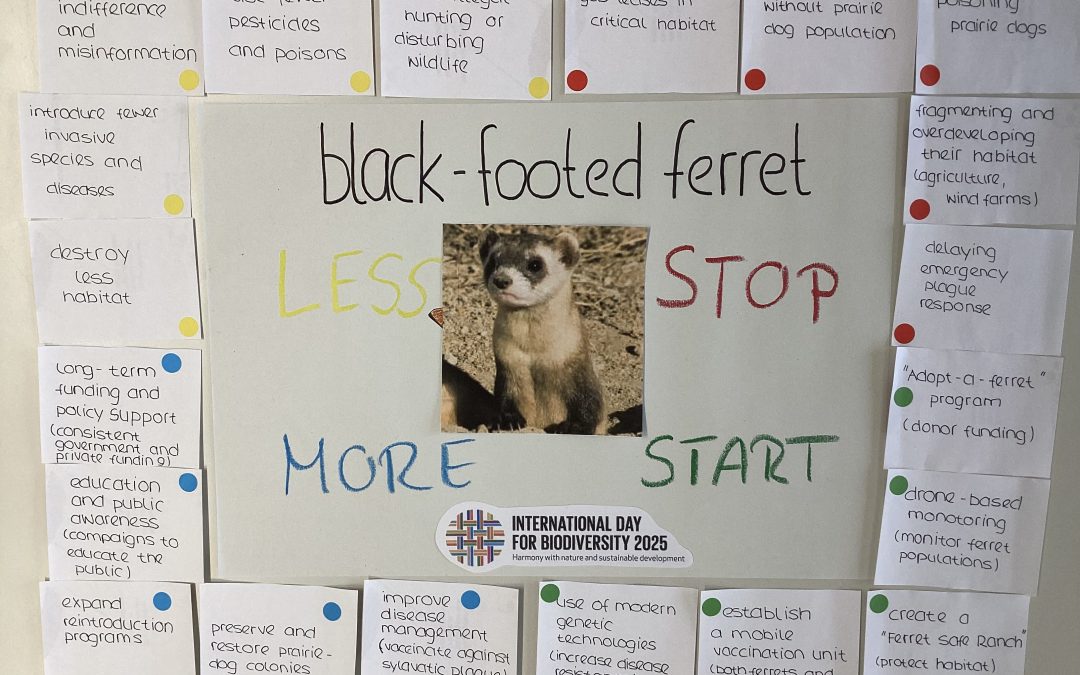 indifference
and
misinformation
pesticides
and poisons
hunting or
disturbing
wildlife
critical habitat
without prairie
dog population
poisoning
prairie dogs
introduce fewer
invasive
species and
diseases
black-footed ferret
fragmenting and
overdeveloping
their habitat
(agriculture,
wind farms)
destroy
less
habitat
LESS
STOP
delaying
emergency
plague
response
long-term
funding and
policy support
(consistent
government and
private funding)
MORE
START
"Adopt-a-ferret"
program
(donor funding)
education
and public
awareness
(compaigns to
educate the
public)
INTERNATIONAL DAY
FOR BIODIVERSITY 2025
Harmony with nature and sustainable development
drone-based
monotoring
(monitor ferret
populations)
expand
reintroduction
programs
preserve and
restore prairie-
dog colonies
improve
disease
management
(vaccinate against
sylvatic plague)
use of modern
genetic
technologies
(increase disease
establish
a mobile
vaccination unit
(both ferrets and
create a
"Ferret Safe Ranch"
(protect habitat)